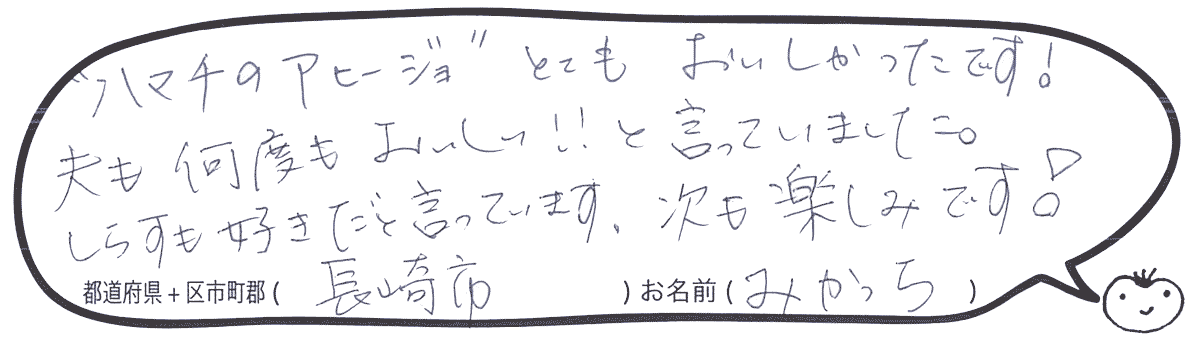 "ハマチのアヒージョ" とても おいしかったです!
夫も 何度も おいしい!! と言っていました。
しらすも好きだと言っています。次も楽しみです!
都道府県+区市町郡( 長崎市 )お名前( みかっち )